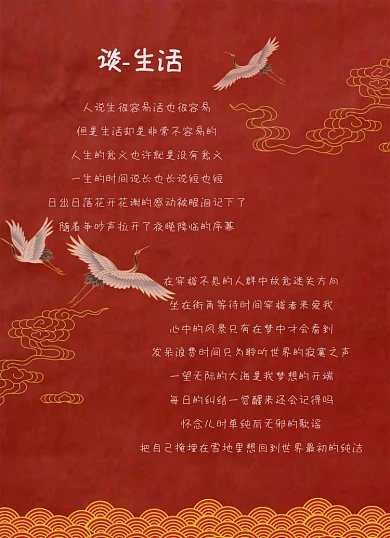 谈-生活
人说生很容易活也很容易
但是生活却是非常不容易的
人生的意义也许就是没有意义
一生的时间说长也长说短也短
日出日落花开花谢的感动被眼泪记下了
随着争吵声拉开了夜晚降临的序幕
在穿梭不息的人群中故意迷失方向
坐在街角等待时间穿梭着来爱我
心中的风景只有在梦中才会看到
发呆浪费时间只为聆听世界的寂寞之声
一望无际的大海是我梦想的开端
每日的纠结一觉醒来还会记得吗
怀念儿时单纯而无邪的歌谣
把自己掩埋在雪地里想回到世界最初的纯洁